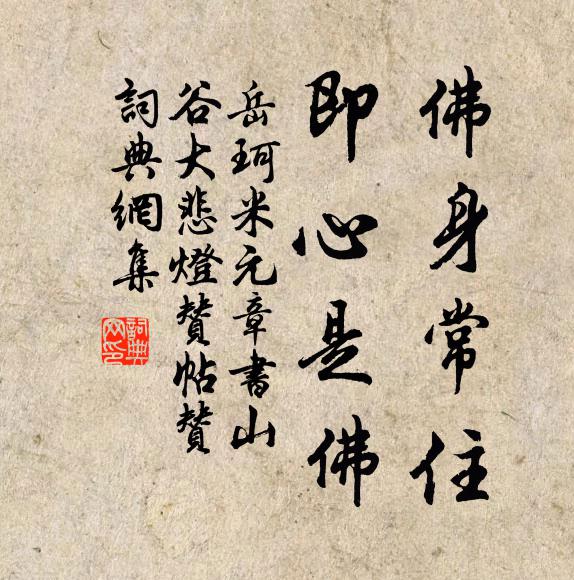 佛身常住
即心是佛
岳珂米元章書山
谷大悲燈贊帖贊
詞典網集
詞典網印